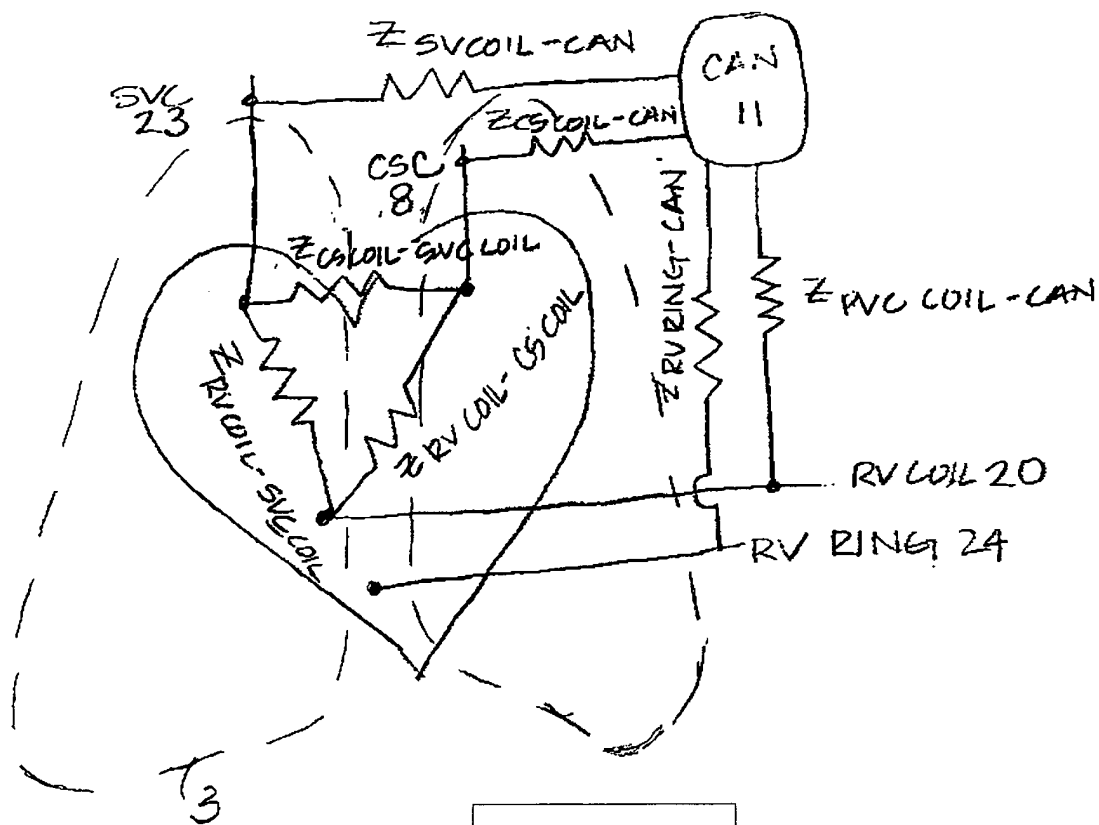 Z SVCOIL-CAN
CAN
11
SVC
23
Z CSCOIL-CAN
CSC
8
Z CSCOIL-SVCCOIL
Z RV RING-CAN
Z PVC COIL-CAN
Z RVCOIL-SVCCOIL
Z RV COIL-CS COIL
RV COIL 20
RV RING 24
3